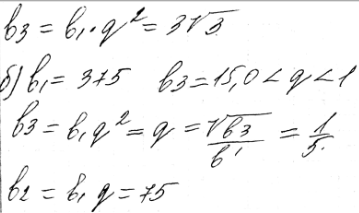 b₃ = b₁·q² = 3√3
б) b₁ = 375 b₃ = 15, 0 < q < 1
b₃ = b₁q² = q = √b₃/b₁ = 1/5.
b₂ = b₁q = 75